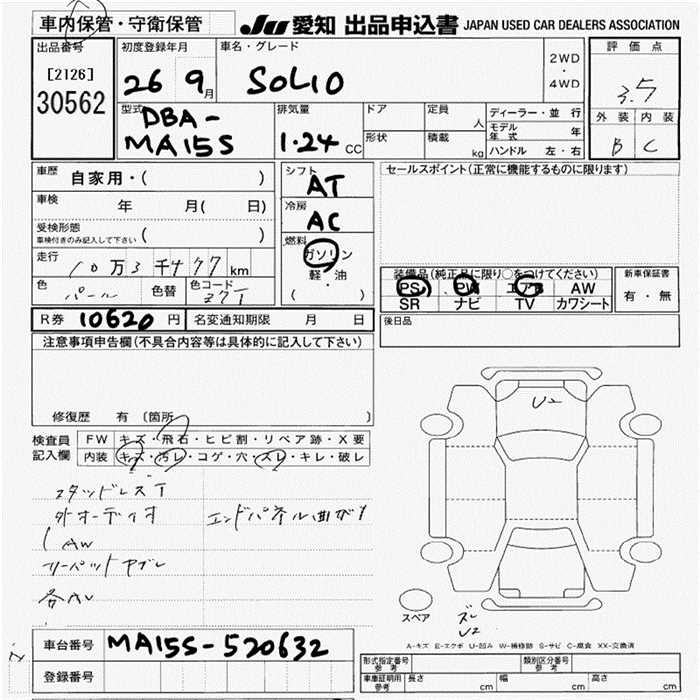 車内保管・守衛保管
JU 愛知 出品申込書 JAPAN USED CAR DEALERS ASSOCIATION
出品番号
[2126]
30562
初度登録年月
26 9月
車名・グレード
SOLIO
2WD
・
4WD
評価点
3.5
外装 内装
B C
型式
DBA-
MA15S
排気量
1.24 CC
ドア
形状
定員 人
積載 kg
ディーラー・並行
モデル年式 年
ハンドル 左・右
車歴 自家用・( )
車検 年 月( 日)
受検形態
車検付きのみ記入して下さい ( )
走行 10万3千477km
色 パール 色替 色コード Z7T
シフト
AT
冷房
AC
燃料
ガソリン
・
軽・油
( )
セールスポイント(正常に機能するものに限ります)
装備品(純正品に限り○をつけてください)
PS PW エアB AW
SR ナビ TV カワシート
新車保証書
有・無
R券 10620円 名変通知期限 月 日
後日品
注意事項申告欄(不具合内容等は具体的に記入して下さい)
修復歴 有 〔箇所 〕
検査員
記入欄
FW キズ・飛石・ヒビ割・リペア跡・X要
内装 キズ・汚レ・コゲ・穴・スレ・キレ・破レ
スタッドレスT
外オーディオ
エンドパネル曲がり
AW
U2
スペア
ズレ
U2
A-キズ E-エクボ U-凹み W-補修跡 S-サビ C-腐食 XX-交換済
車台番号 MA15S-520632
登録番号
型式指定番号
参考
類別区分番号
参考
車庫証明用
参考
長さ cm 幅 cm 高さ cm